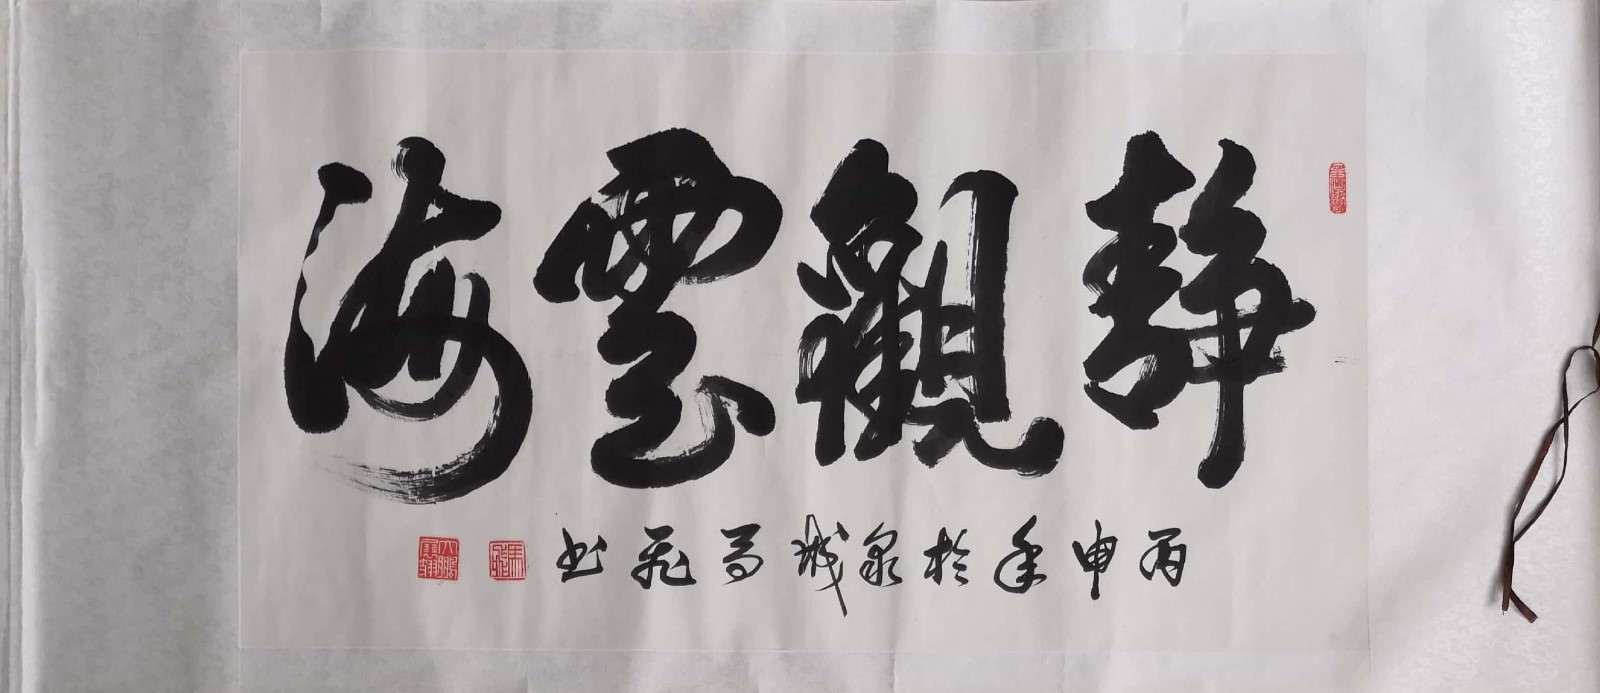 靜觀雲海
丙申年於泉城馬飛书